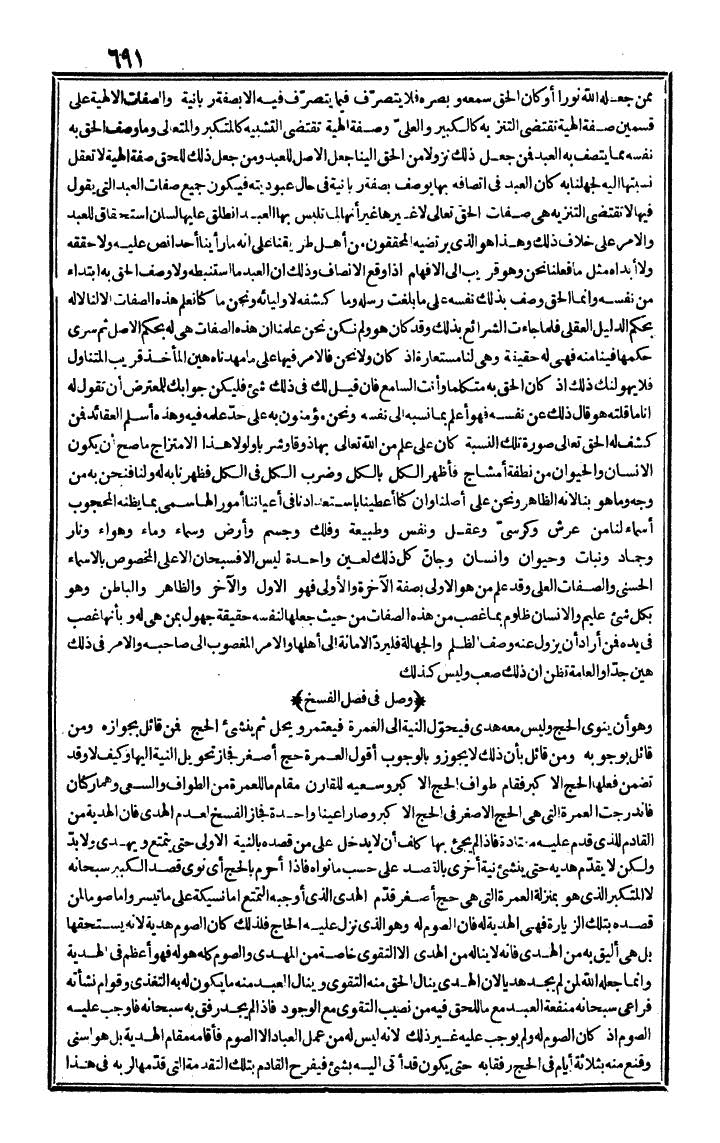 ٦٩١
ممن جعل له الله نورا أو كان الحق سمعه و بصره فلا يتصرّف فيما يتصرّف فيه الا بصفة ربانية والصفات الالهية على
قسمين صفة الهية تقتضى التنزيه كالكبير والعلىّ وصفة الهية تقتضى التشبيه كالمتكبر والمتعالى وما وصف الحق به
نفسه مما يتصف به العبد فمن جعل ذلك نزولا من الحق الينا جعل الاصل للعبد ومن جعل ذلك للحق صفة الهية لا تعقل
نسبتها اليه لجهلنا به كان العبد فى اتصافه بها يوصف بصفة ربانية فى حال عبوديته فيكون جميع صفات العبد التى يقول
فيها لا تقتضى التنزيه هى صفات الحق تعالى لا غيرها غير أنها لما تلبس بها العبد انطلق عليها لسان استحقاق للعبد
والامر على خلاف ذلك وهذا هو الذى يرتضيه المحققون من أهل طريقنا على انه ما رأينا أحدا نص عليه ولا حققه
ولا أبداه مثل ما فعلنا نحن وهو قريب الى الافهام اذا وقع الانصاف وذلك ان العبد ما استنبطه ولا وصف الحق به ابتداء
من نفسه وانما الحق وصف بذلك نفسه على ما بلغت رسله وما كشفه لاوليائه ونحن ما كنا نعلم هذه الصفات الا لنا لا له
بحكم الدليل العقلى فلما جاءت الشرائع بذلك وقد كان هو ولم نكن نحن علمنا ان هذه الصفات هى له بحكم الاصل ثم سرى
حكمها فينا منه فهى له حقيقة وهى لنا مستعارة اذ كان ولا نحن فالامر فيها على ما مهدناه هين المأخذ قريب المتناول
فلا يهولنك ذلك اذ كان الحق به متكلما وأنت السامع فان قيل لك فى ذلك شئ فليكن جوابك للمعترض أن تقول له
انا ما قلته هو قال ذلك عن نفسه فهو أعلم بما نسبه الى نفسه ونحن مؤمنون به على حدّ علمه فيه وهذه أسلم العقائد فمن
كشف له الحق تعالى صورة تلك النسبة كان على علم من الله تعالى بها ذوقا وشربا ولولا هذا الامتزاج ما صح أن يكون
الانسان والحيوان من نطفة أمشاج فأظهر الكل بالكل وضرب الكل فى الكل فظهرنا به له ولنا فنحن به من
وجه وما هو بنا لانه الظاهر ونحن على أصلنا وان كنا أعطينا باستعدادنا فى أعياننا أمورا لها سمى بما يظنه المحجوب
أسماء لنا من عرش وكرسىّ وعقل ونفس وطبيعة وفلك وجسم وأرض وسماء وماء وهواء ونار
وجماد ونبات وحيوان وانسان وجانّ كل ذلك لعين واحدة ليس الا فسبحان الاعلى المخصوص بالاسماء
الحسنى والصفات العلى وقد علم من هو الاولى بصفة الآخرة والأولى فهو الاول والآخر والظاهر والباطن وهو
بكل شئ عليم والانسان ظلوم بما غصب من هذه الصفات من حيث جعلها لنفسه حقيقة جهول بمن هى له و بأنها غصب
فى يده فمن أراد أن يزول عنه وصف الظلم والجهالة فليردّ الامانة الى أهلها والامر المغصوب الى صاحبه والامر فى ذلك
هين جدّا والعامة تظن ان ذلك صعب وليس كذلك
﴿وصل فى فصل الفسخ﴾
وهو أن ينوى الحج وليس معه هدى فيحوّل النية الى العمرة فيعتمر ويحل ثم ينشئ الحج فمن قائل بجوازه ومن
قائل بوجوبه ومن قائل بأن ذلك لا يجوز و بالوجوب أقول العمرة حج أصغر فجاز تحويل النية اليها وكيف لا وقد
تضمن فعلها الحج الاكبر فقام طواف الحج الاكبر وسعيه للقارن مقام ما للعمرة من الطواف والسعى وهما ركنان
فاندرجت العمرة التى هى الحج الاصغر فى الحج الاكبر وصارا عينا واحدة فجاز الفسخ لعدم الهدى فان الهدية من
القادم للذى قدم عليه معتادة فاذا لم يجئ بها كلف أن لا يدخل على من قصده بالنية الاولى حتى يتمتع و يهدى ولا بدّ
ولكن لا يقدّم هديه حتى ينشئ نية أخرى بالقصد على حسب ما نواه فاذا أحرم بالحج أى نوى قصد الكبير سبحانه
لا المتكبر الذى هو بمنزلة العمرة التى هى حج أصغر قدّم الهدى الذى أوجبه التمتع اما نسيكة على ما تيسر واما صوما لمن
قصده بتلك الزيارة فهى الهدية له فان الصوم له وهو الذى نزل عليه الحاج فلذلك كان الصوم هدية لانه يستحقها
بل هى أليق به من الهدى فانه لا يناله من الهدى الا التقوى خاصة من المهدى والصوم كله هو له فهو أعظم فى الهدية
وانما جعله الله لمن لم يجد هديا لان الهدى ينال الحق منه التقوى وينال العبد منه ما يكون له به التغذى وقوام نشأته
فراعى سبحانه منفعة العبد مع ما للحق فيه من نصيب التقوى مع الوجود فاذا لم يجد رفق به سبحانه فاوجب عليه
الصوم اذ كان الصوم له ولم يوجب عليه غير ذلك لانه ليس له من عمل العباد الا الصوم فأقامه مقام الهدية بل هو اسنى
وقنع منه بثلاثة أيام فى الحج رفقا به حتى يكون قد أتى اليه بشئ فيفرح القادم بتلك التقدمة التى قدّمها لربه فى هذا